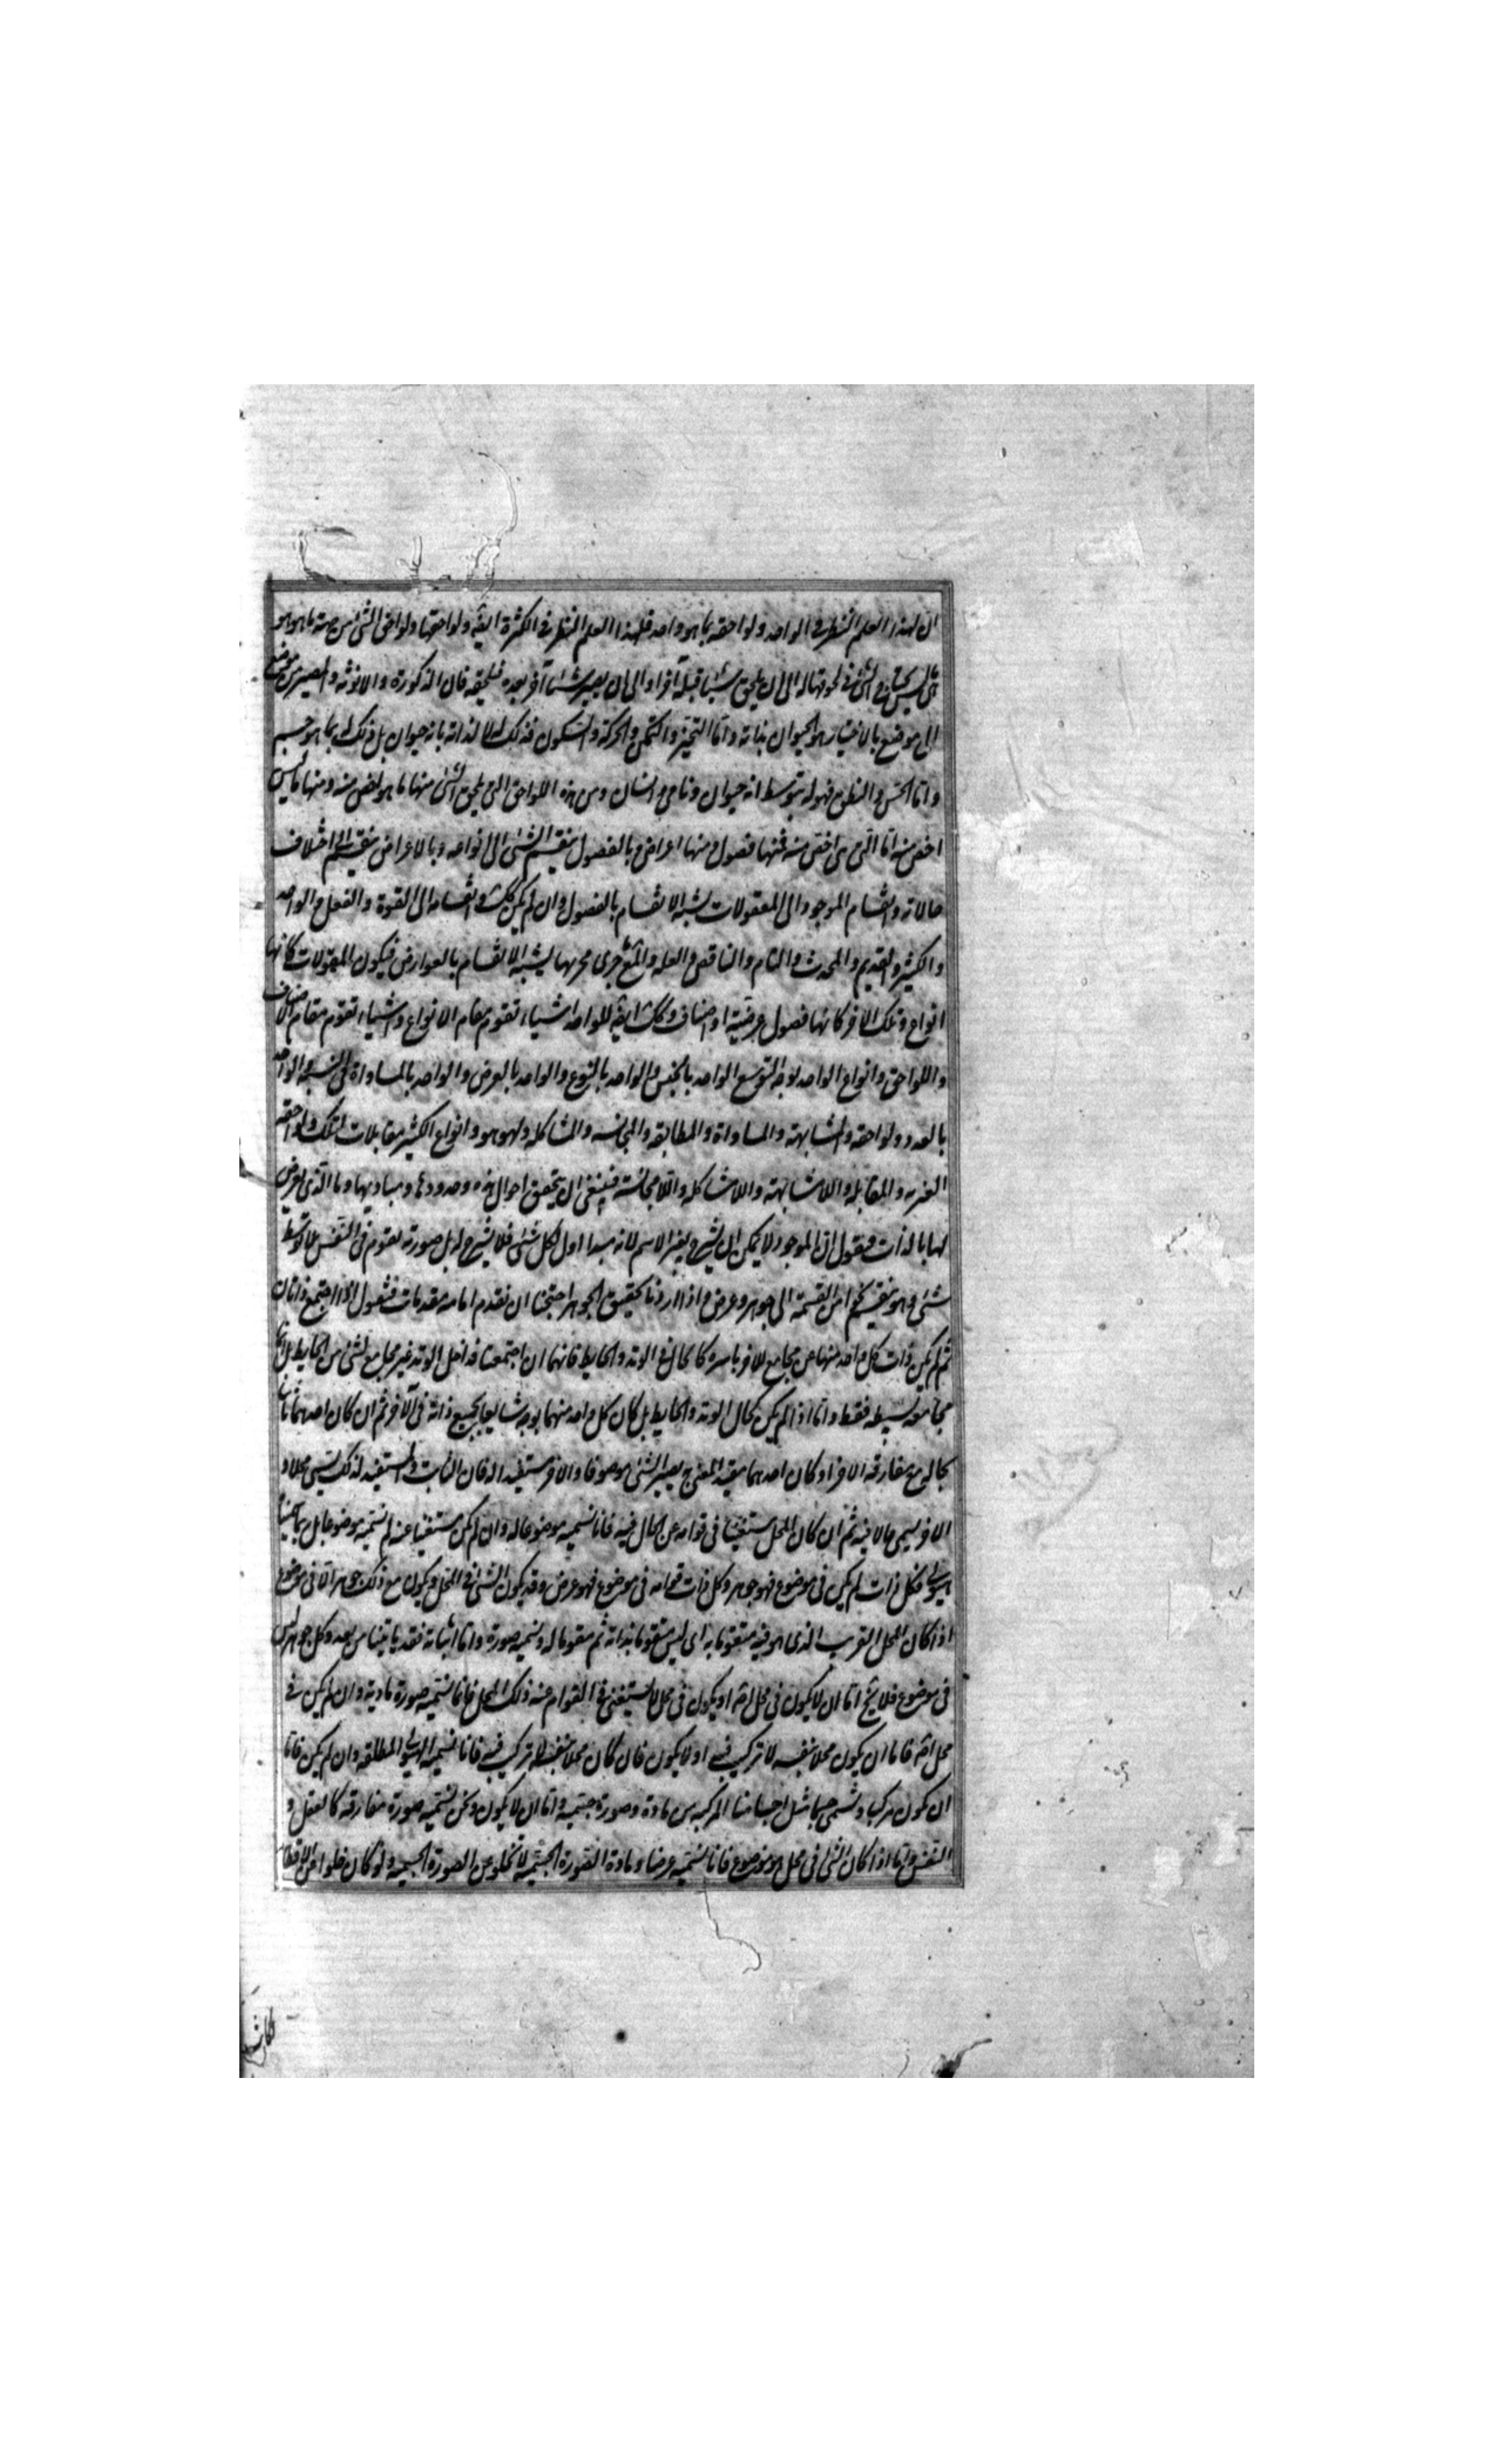 ان لهذا العلم النظر في الواحد ولواحقه بما هو واحد فلهذا العلم النظر في الكثرة ايضه ولواحقها ولواحق الشئ من جهة ما هو هو
في لحوقها له الى ان يلحق شيئا قبله آخر او الى ان يصير شيئا آخر بعده فيلحقه فان الذكورة والانوثه والمصير من موضع
الى موضع بالاختيار هو للحيوان بذاته واما التحيز والتمكن والحركة والسكون فذلك له لا لذاته بانه حيوان بل ذلك له بما هو جسم
واما الحس والنطق فهو له بتوسط انه حيوان ونامى وانسان ومن هذه اللواحق التى تلحق الشئ منها ما هو اخص منه ومنها ما ليس
اخص منه اما التى هى اخص منه فمنها فصول ومنها اعراض وبالفصول ينقسم الشئ الى انواعه وبالاعراض ينقسم الى اختلاف
حالاته وانقسام الموجود الى المقولات يشبه الانقسام بالفصول وان لم يكن كك وانقسامه الى القوة والفعل والواحد
والكثير والقديم والمحدث والتام والناقص والعلة والمع جرى مجريها يشبه الانقسام بالعوارض فيكون المقولات كانها
انواع وتلك الاخر كانها فصول عرضية او اصناف وكك ايضه للواحد اشياء تقوم مقام الانواع واشياء تقوم مقام الاصناف
واللواحق وانواع الواحد بوجه التوسع الواحد بالجنس والواحد بالنوع والواحد بالعرض والواحد بالمساواة فى النسبة والواحد
بالعدد ولواحقه والمشابهة والمساواة والمطابقه والمجانسه والمشاكله والهوهو وانواع الكثير مقابلات لتلك ولواحقه
الغيرية والمقابله واللامشابهة واللامشاكله واللامجانسة فينبغى ان يتحقق احوال هذه وحدودها ومباديها وما الذى يعرض
لها بالذات فنقول ان الموجود لا يمكن ان يشرح بغير الاسم لانه مبدا اول لكل شئ فلا شرح له بل صورته تقوم فى النفس بلا توسط
شئ وهو ينقسم نحوا من القسمة الى جوهر وعرض واذا اردنا تحقيق الجوهر احتجنا ان نقدم امامه مقدمات فنقول اذا اجتمع ذاتان
ثم لم يكن ذات كل واحد منهما عن مجامع للاخر باسره كالحال فى الوتد والحايط فانهما ان اجتمعتا فداخل الوتد غير مجامع لشئ من الحايط بل انما
مجامعه ببسيطه فقط واما اذا لم يكن كحال الوتد والحايط بل كان كل واحد منهما يوجد شايعا بجميع ذاته فى الآخر ثم ان كان احدهما ثابتا
بحاله مع مفارقه الاخر او كان احدهما مفيدا لمعنى به يصير الشئ موصوفا والاخر مستفيدا له فان الثابت والمستفيد لذلك يسمى محلا و
الاخر يسمى حالا فيه ثم ان كان المحل مستغنيا فى قوامه عن الحال فيه فانا نسميه موضوعا له وان لم يكن مستغنيا عنه لم نسميه موضوعا بل ربما سميناه
هيولى فكل ذات لم يكن فى موضوع فهو جوهر وكل ذات قوامه فى موضوع فهو عرض وقد يكون الشئ فى المحل ويكون مع ذلك جوهرا لا فى موضوع
اذا كان المحل القريب الذى هو فيه متقوما به اى ليس متقوما بذاته ثم مقوما له ونسميه صورة واما اثباته فقد ياتينا من بعد وكل جوهر ليس
فى موضوع فلا يخ اما ان لا يكون فى محل اصه او يكون فى محل لا يستغنى فى القوام عنه ذلك المحل فانا نسميه صورة مادية وان لم يكن فى
محل اصه فاما ان يكون محلا بنفسه لا تركيب فيه او لا يكون فان كان محلا بنفسه لا تركيب فيه فانا نسميه الهيولى المطلقه وان لم يكن فاما
ان يكون مركبا ونسمى جسما مثل اجسامنا المركبه من مادة وصورة جسميه واما ان لا يكون ونحن نسميه صورة مفارقه كالعقل و
النفس واما اذا كان الشئ فى محل هو موضوع فانا نسميه عرضا ومادة الصورة الجسميه لا تخلو عن الصورة الجسميه ولو كان خلوا من الاقطار